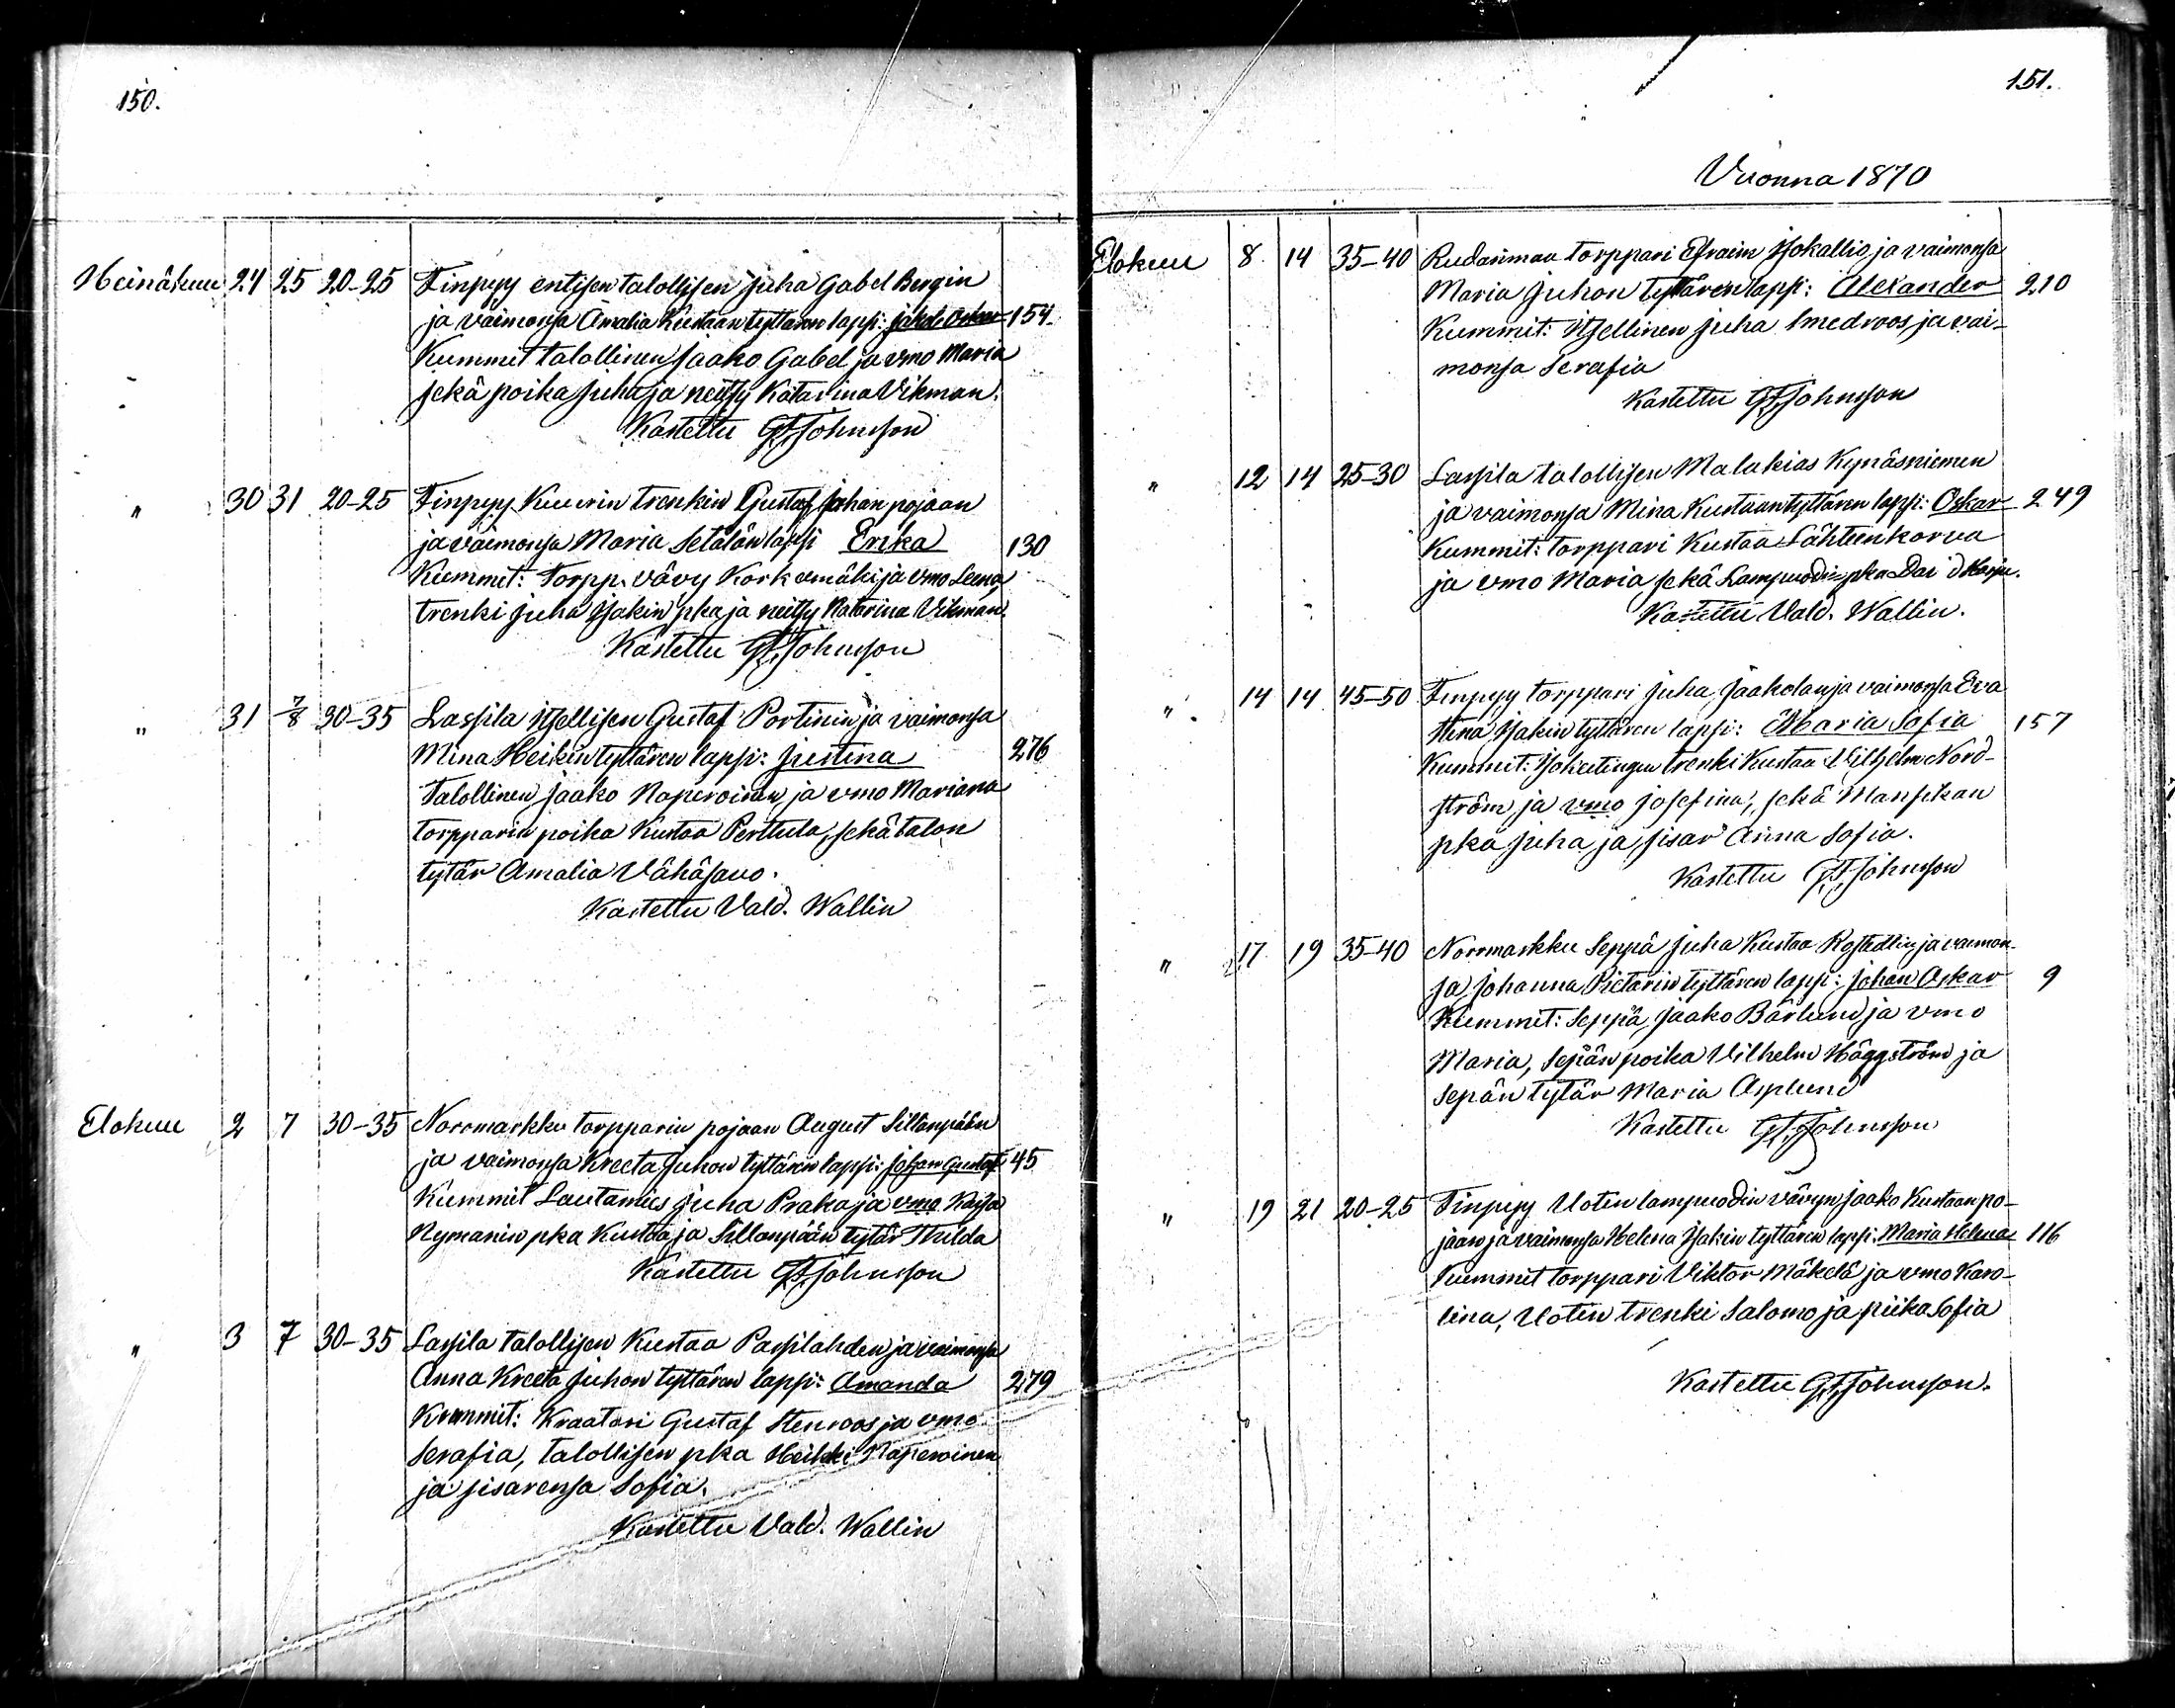 150.
Heinäkuu 24 25 20-25 Finpyy entisen talollisen Juha Gabel Bergin
ja vaimonsa Amalia Kustaan tyttären lapsi: Jakob Oskar 154.
Kummit talollinen Jaako Gabel ja vmo Maria
sekä poika Juha ja neitsy Katarina Vikman.
Kastettu G.F. Johnsson
" 30 31 20-25 Finpyy Kuurin trenkin Gustaf Johan pojaan
ja vaimonsa Maria Setälän lapsi Erika 130
Kummit: Torpp. vävy Korkeamäki ja vmo Leena,
trenki Juha Isakin pka ja neitsy Katarina Vikman.
Kastettu G.F. Johnsson
" 31 7/8 30-35 Lassila itsellisen Gustaf Portinin ja vaimonsa
Mina Heikin tyttären lapsi: Justina 276
Talollinen Jaako Naperoinen ja vmo Mariana
torpparin poika Kustaa Perttula, sekä talon
tytär Amalia Vähäsavo.
Kastettu Vald. Wallin
Elokuu 2 7 30-35 Norrmarkku torpparin pojaan August Sillanpään
ja vaimonsa Kreeta Juhon tyttären lapsi: Johan Gustaf 45
Kummit Lautamies Juha Praka ja vmo Kaisa
Nymanin pka Kustaa ja Sillanpään tytär Thilda
Kastettu G.F. Johnsson
" 3 7 30-35 Lassila talollisen Kustaa Passilahden ja vaimonsa
Anna Kreeta Juhon tyttären lapsi: Amanda 279
Kummit: Kraatari Gustaf Stenroos ja vmo
Serafia, talollisen pka Heikki Naperoinen
ja sisarensa Sofia.
Kastettu Vald. Wallin
151.
Vuonna 1870
Elokuu 8 14 35-40 Rudanmaa torppari Efraim Isokallio ja vaimonsa
Maria Juhon tyttären lapsi: Alexander 210
Kummit: itsellinen Juha Smedroos ja vai-
monsa Serafia
Kastettu G.F. Johnsson
" 12 14 25-30 Lassila talollisen Malakias Kynäsniemen
ja vaimonsa Mina Kustaan tyttären lapsi: Oskar 249
Kummit: torppari Kustaa Lähteenkorva
ja vmo Maria sekä Lampuodin pka David Harju.
Kastettu Vald. Wallin.
" 14 14 45-50 Finpyy torppari Juha Jaakolan ja vaimonsa Eva
Stina Isakin tyttären lapsi: Maria Sofia 157
Kummit: trenki Kustaa Vilhelm Nord-
ström ja vmo Josefina, sekä
pka Juha ja sisar Anna Sofia.
Kastettu G.F. Johnsson
" 17 19 35-40 Norrmarkku Seppä Juha Kustaa ja vaimon-
sa Johanna Pietarin tyttären lapsi: Johan Oskar 9
Kummit: Seppä Jaako Bärlund ja vmo
Maria, Sepän poika Vilhelm Häggström ja
Sepän tytär Maria Asplund
Kastettu G.F. Johnsson
" 19 21 20-25 Finpyy Uotin lampuodin vävyn Jaako Kustaan po-
jaan ja vaimonsa Helena Isakin tyttären lapsi: Maria Helena 116
Kummit torppari Viktor Mäkelä ja vmo Karo-
lina, Uotin trenki Salomo ja piika Sofia
Kastettu G.F. Johnsson.